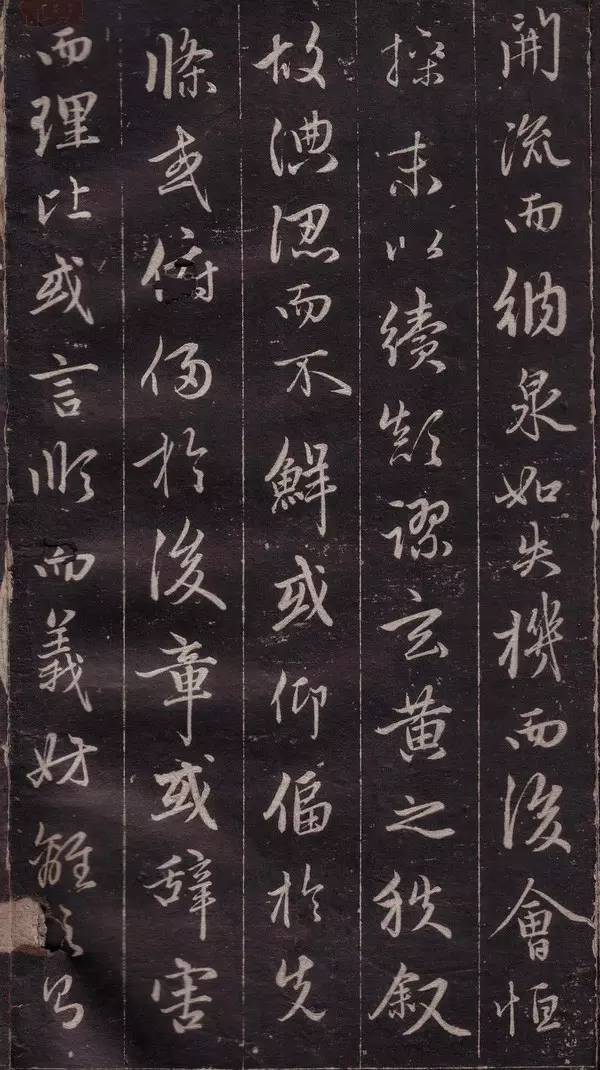 開流而納泉如失機而後會恒
操末以續顛謬玄黄之秩叙
故淟涊而不鮮或仰偪於先
條或俯侵於後章或辭害
而理比或言順而義妨離之則